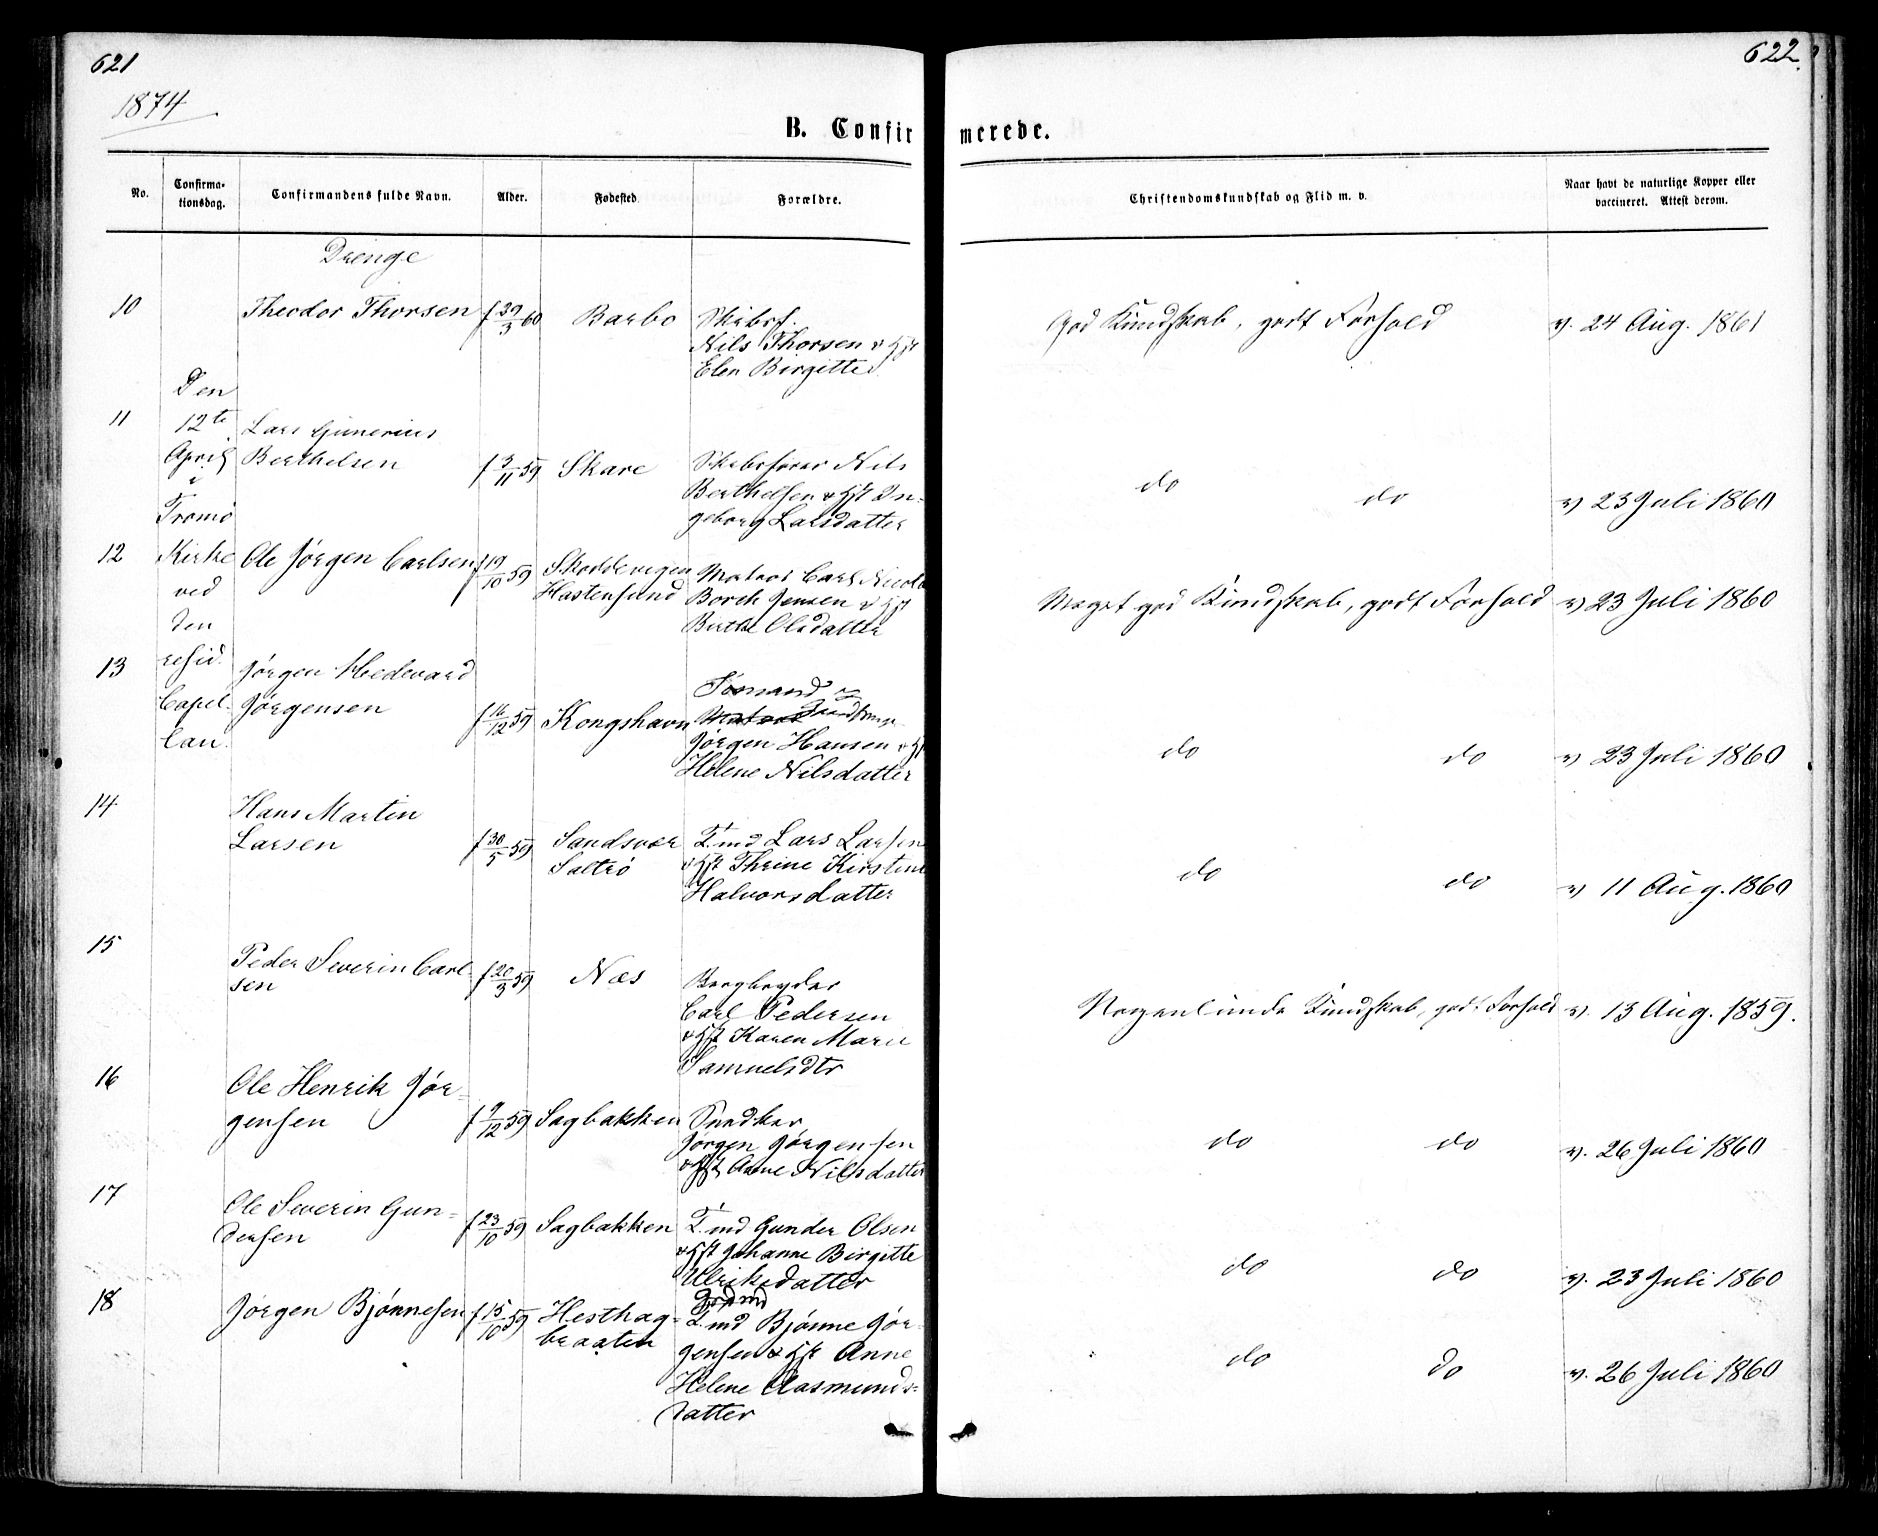 621
622.
1874
B. Confirmerede.
No. Confirmationsdag. Confirmandens fulde Navn. Alder. Fødested. Forældre. Christendomskundskab og Flid m. v. Naar havt de naturlige Kopper eller vaccineret. Attest derom.
Drenge
10 Theodor Thorsen f 29/3 60 Barbo Skibsf.
Nils Thorsen & Hst
Elen Birgitte
God Kundskab, godt Forhold v. 24 Aug. 1861
Den
12te
April
i
Tromø
Kirke
ved
den
resid.
Capel-
lan.
11 Lars Gunerius
Berthelsen f 3/11 59 Skare Skibsfører Nils
Berthelsen & Hst In-
geborg Larsdatter
do do v 23 Juli 1860
12 Ole Jørgen Carlsen f 19/10 59
Hastensund
Matros Carl Nicolai
Borch Jensen & Hst
Birthe Olsdatter
Meget god Kundskab, godt Forhold v 23 Juli 1860
13 Jørgen Hedevard
Jørgensen f 16/12 59 Kongshavn Sømand
Matros
Jørgen Hansen & Hst
Helene Nilsdatter
do do v 23 Juli 1860
14 Hans Martin
Larsen f 30/5 59 Sandsvær
Saltrø
T.md Lars Larsen
& Hst Thrine Kirstine
Halvorsdatter
do do v 11 Aug. 1860
15 Peder Severin Carl-
sen f 20/3 59 Næs
Carl Pedersen
& Hst Karen Marie
Samuelsdtr
Nogenlunde Kundskab, godt Forhold v. 13 Aug. 1859.
16 Ole Henrik Jør-
gensen f 9/12 59 Sagbakken Snedker
Jørgen Jørgensen
& Hst Anne Nilsdatter
do do v. 26 Juli 1860
17 Ole Severin Gun-
dersen f 23/10 59 Sagbakken T.md Gunder Olsen
& Hst Johanne Birgitte
Ulriksdatter
do do v. 23 Juli 1860
18 Jørgen Bjønnesen f 15/10 59 Hesthag-
braaten
Grdmd
T.md Bjønne Jør-
gensen & Hst Anne
Helene Aasmunds-
datter
do do v. 26 Juli 1860